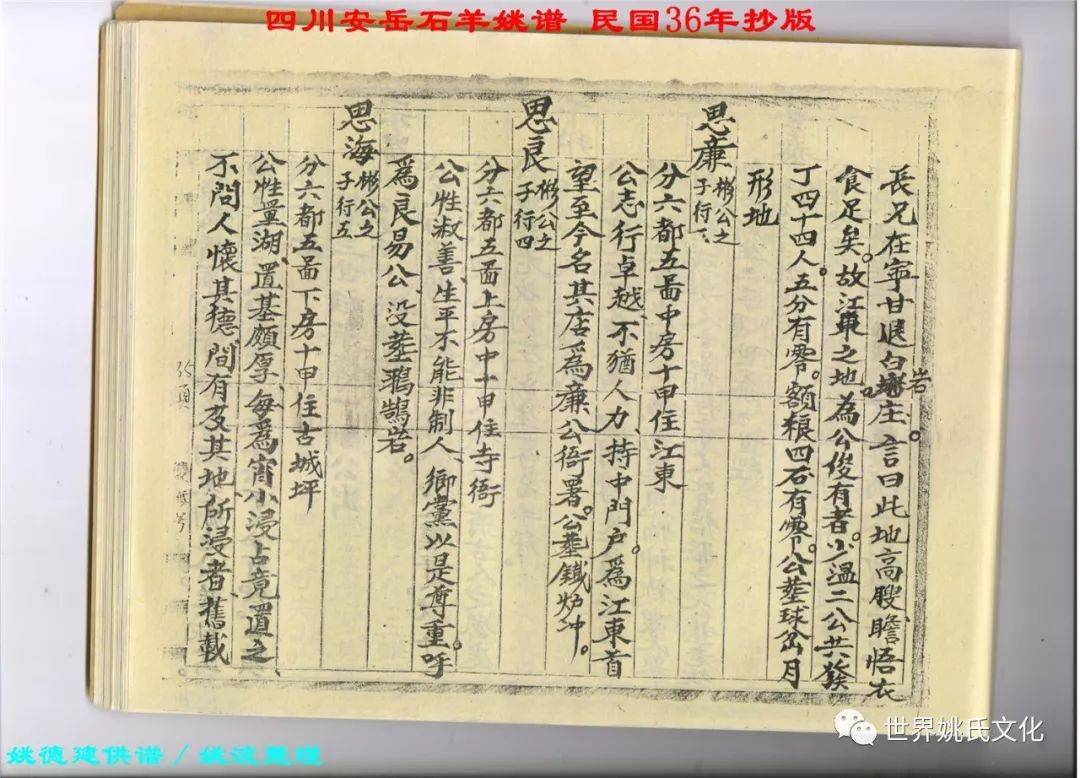 四川安岳石羊姚谱 民国36年抄版
長兄在寧甘退白岩庄。言曰此地高膄瞻悟衣
食足矣。故江東之地為公俊有者。小溫二公共發
丁四十四人。五分有零。額粮四石有零。公塟球岔月
形地
思廉 彬公之子行三
分六都五啚中房十甲住江東
公志行卓越、不猶人力、持中門戶。為江東首
望至今名其店為廉公衙署。公塟鐵炉冲。
思良 彬公之子行四
分六都五啚上房中一甲住寺衙
公性淑善、生平不能非制人、鄉黨以是尊重。呼
為良易公、没塟鵶鵲岩。
思海 彬公之子行五
分六都五啚下房十甲住古城坪
公性量湖、置基頗厚、每為宵小浸占竟置之
不問人懷其德、間有及其地所浸者、舊載
姚德建供谱/姚波整理
世界姚氏文化